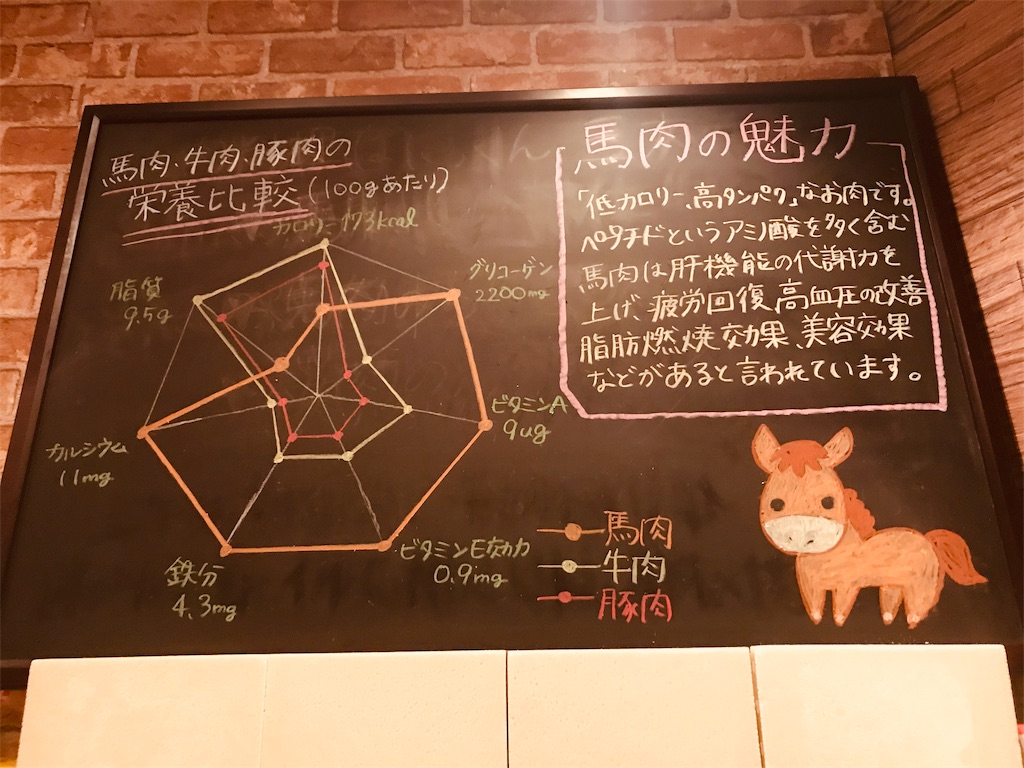 馬肉・牛肉・豚肉の
栄養比較(100gあたり)
カロリー 173kcal
グリコーゲン
2200mg
ビタミンA
9ug
ビタミンE効力
0.9mg
鉄分
4.3mg
カルシウム
11mg
脂質
9.5g
馬肉
牛肉
豚肉
馬肉の魅力
「低カロリー、高タンパク」なお肉です。
ペプチドというアミノ酸を多く含む
馬肉は肝機能の代謝力を
上げ、疲労回復、高血圧の改善
脂肪燃焼効果、美容効果
などがあると言われています。